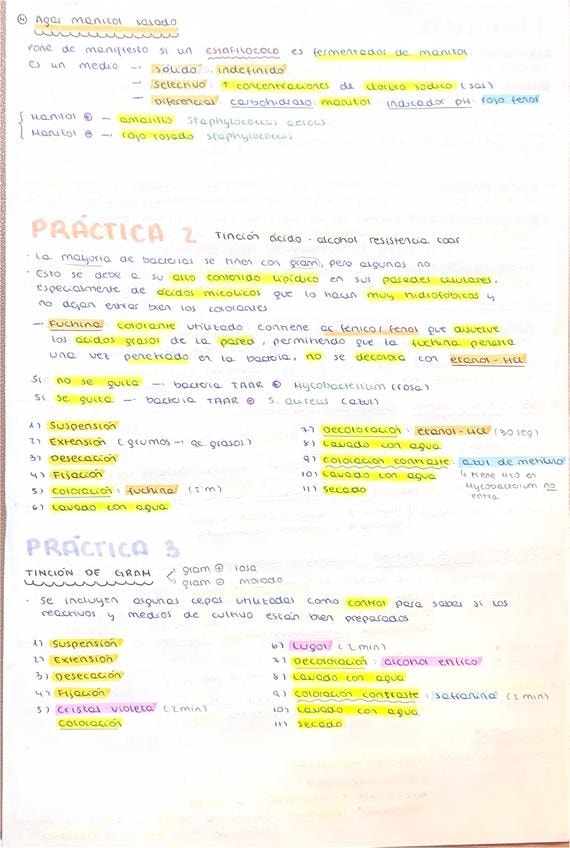 ④ Agar manitol salado
Pone de manifiesto si un ESTAFILOCOCO es fermentador de manitol.
Es un medio → sólido, indefinido
→ selectivo: ↑ concentraciones de cloruro sódico (sal)
→ Diferencial: carbohidrato: manitol indicador pH: rojo fenol
Manitol ⊕ → amarillo Staphylococcus aereus
Manitol ⊖ → rojo rosado Staphylococcus
PRÁCTICA 2 Tinción ácido-alcohol resistencia
· La mayoría de bacterias se tiñen con gram, pero algunas no.
· Esto se debe a su alto contenido lipídico en sus paredes celulares,
especialmente de ácidos micólicos que lo hacen muy hidrofóbicos y
no dejan entrar bien los colorantes
→ Fuchina: colorante utilizado contiene ac. fenico/fenol que disuelve
los ácidos grasos de la pared, permitiendo que la fuchina penetre
una vez penetrado en la bacteria, no se decolora con etanol-HCl
Si no se quita → bacteria TAAR ⊕ Mycobacterium (rosa)
Si se quita → bacteria TAAR ⊖ S. aureus (azul)
1) Suspensión
2) Extensión (grumos → ac. grasos)
3) Desecación
4) Fijación
5) Coloración: fuchina (5'm)
6) Lavado con agua
7) Decoloración: etanol-HCl (30 seg)
8) Lavado con agua
9) coloración contraste: azul de metileno
10) Lavado con agua
↳ tiene en
Mycobacterium no
entra
11) secado
PRÁCTICA 3
TINCIÓN DE GRAM
gram ⊕: rosa
gram ⊖: morado
· Se incluyen algunas cepas utilizadas como control para saber si los
reactivos y medios de cultivo están bien preparados
1) Suspensión
2) Extensión
3) Desecación
4) Fijación
5) cristal violeta (2 min)
coloración
6) Lugol (2 min)
7) Decoloración: alcohol etílico
8) Lavado con agua
9) coloración contraste: safranina (2 min)
10) Lavado con agua
11) secado.